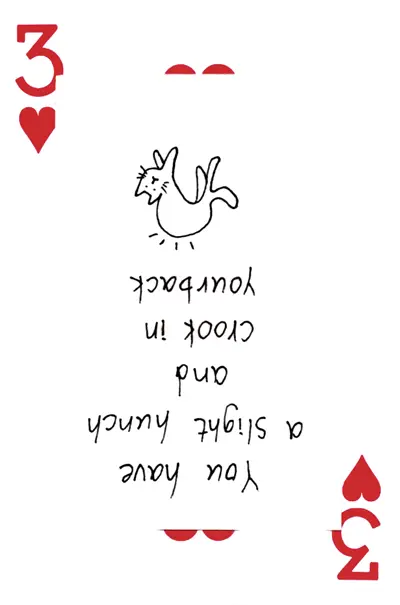 3
You have
a slight hunch
and
crook in
your back
3